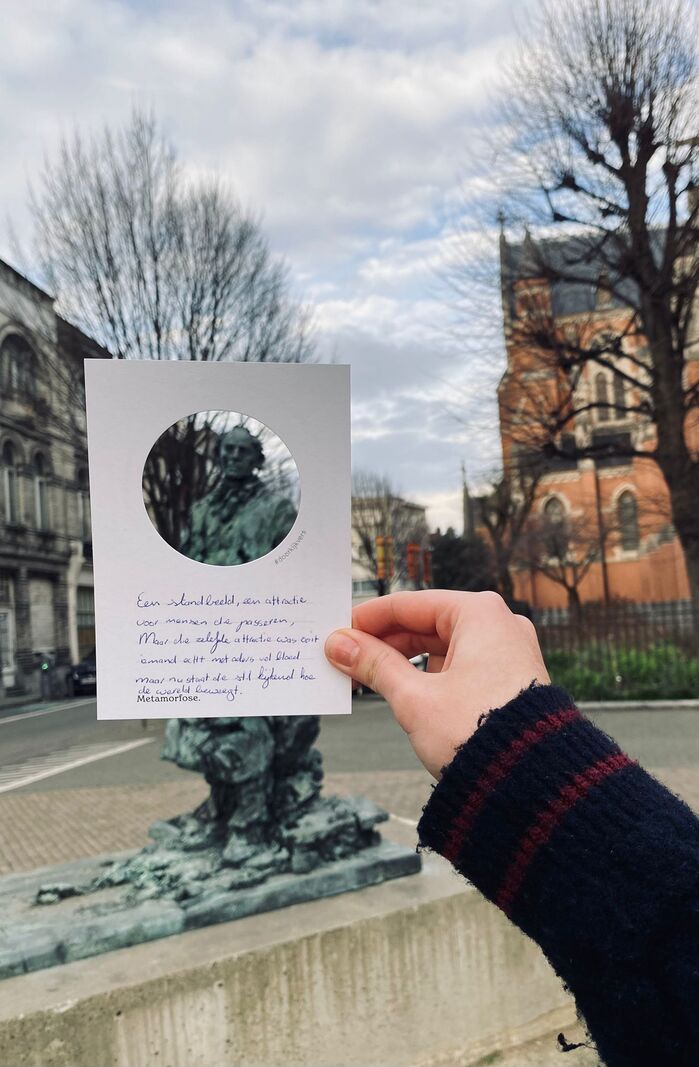 #doorkijkvers
Een standbeeld, een attractie
voor mensen die passeren,
Maar die zelfde attractie was ooit
iemand echt met aders vol bloed
maar nu staat die stil kijkend hoe
de wereld beweegt.
Metamorfose.